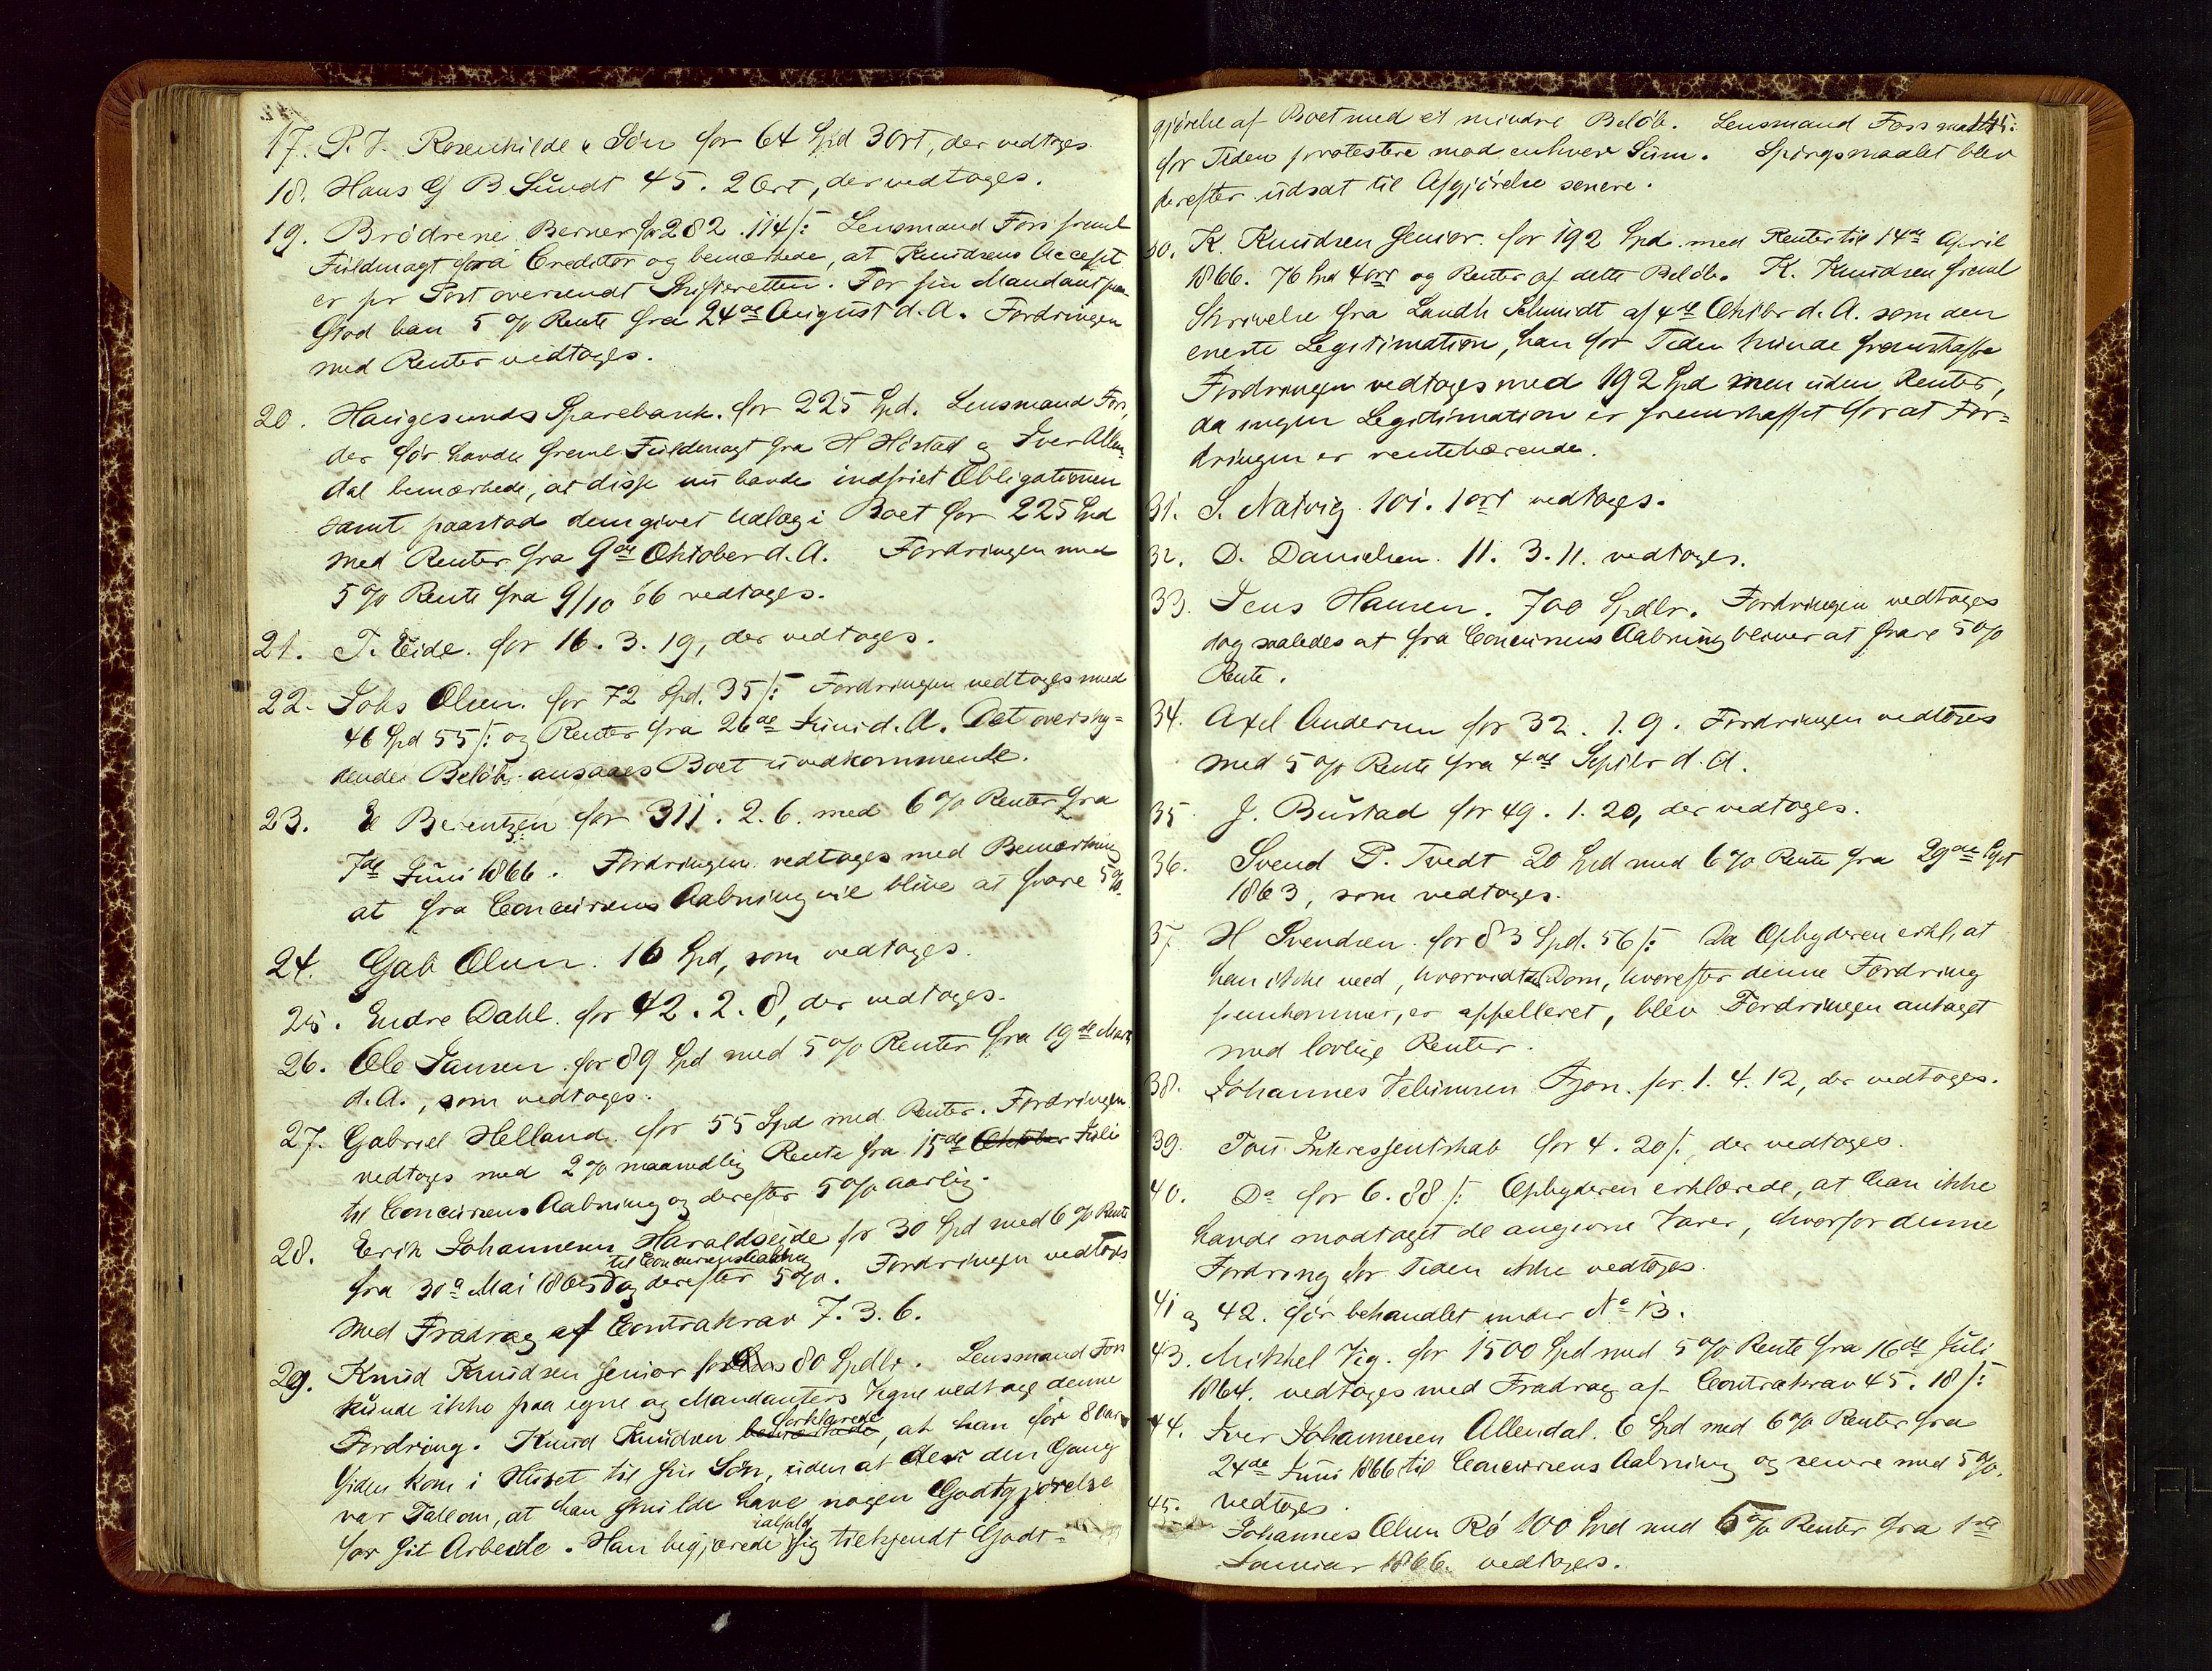 17. P. T. Rosenkilde & Søn for 64 Spd 3 Ort, der vedtages
18. Hans G B Sundt 45. 2 Ort, der vedtages.
19. Brødrene Berner for 282. 114 /: Lensmand Foss freml
Fuldmagt fra Creditor og bemærkede, at Knudsens Accept
er pr Post oversendt Skifteretten. For sin Mandant paa-
stod han 5 % Rente fra 24de August d. A. Fordringen
med Renter vedtages.
20. Haugesunds Sparebank for 225 Spd. Lensmand Foss,
der før havde freml Fuldmagt fra H Høstad og Iver Allen-
dal bemærkede, at disse nu havde indfriet Obligationen
samt paastod dem givet Udlæg i Boet for 225 Spd
med Renter fra 9de Oktober d. A. Fordringen med
5 % Rente fra 9/10 66 vedtages.
21. T. Eide for 16. 3. 19, der vedtages.
22. Johs Olsen for 72 Spd. 35 /: Fordringen vedtages med
46 Spd 55 /: og Renter fra 26de Juni d. A. Det oversky-
dende Beløb ansaaes Boet uvedkommende.
23. E Berentzen for 311. 2. 6. med 6 % Renter fra
7de Juni 1866. Fordringen vedtages med Bemærkning
at fra Concursens Aabning vil blive at svare 5 %.
24. Gab Olsen. 16 Spd, som vedtages.
25. Endre Dahl for 42. 2. 8, der vedtages.
26. Ole Jansen for 89 Spd med 5 % Renter fra 19de Marts
d. A., som vedtages.
27. Gabriel Helland for 55 Spd med Renter. Fordringen
vedtages med 2 % maanedlig Rente fra 15de Oktober Juli
til Concursens Aabning og derefter 5 % aarlig.
28. Erik Johannesen Haraldseide for 30 Spd med 6 % Rente
til Concursens Aabning
fra 30te Mai 1865 og derefter 5 %. Fordringen vedtoges
med Fradrag af Contrakrav 7. 3. 6.
29. Knud Knudsen senior for 80 Spdlr. Lensmand Foss
kunde ikke paa egne og Mandanters Vegne vedtage denne
forklarede
Fordring. Knud Knudsen bemærkede, at han for 8 Aar
siden kom i Huset til sin Søn, uden at der den Gang
var Tale om, at han skulde have nogen Godtgjørelse
ialfald
for sit Arbeide. Han begjærede sig tilkjendt Godt-
145.
gjørelse af Boet med et mindre Beløb. Lensmand Foss maatte
for Tiden protestere mod enhver Sum. Spørgsmaalet blev
derefter udsat til Afgjørelse senere.
30. K. Knudsen Senior for 192 Spd. med Renter til 14de April
1866. 76 Spd 4 ort og Renter af dette Beløb. K. Knudsen freml
Skrivelse fra Landh Schmidt af 4de Oktbr d. A. som den
eneste Legitimation, han for Tiden kunde fremskaffe
Fordringen vedtages med 192 Spd men uden Renter,
da ingen Legitimation er fremskaffet for at For-
dringen er rentebærende.
31. S. Natvig 101. 1 ort vedtages.
32. D. Danielsen. 11. 3. 11. vedtages.
33. Jens Hansen. 700 Spdlr. Fordringen vedtages
dog saaledes at fra Concursens Aabning bliver at svare 5 %
Rente.
34. Axel Andersen for 32. 1. 9. Fordringen vedtoges
med 5 % Rente fra 4de Septbr d. A.
35 J. Bustad for 49. 1. 20, der vedtages.
36. Svend P. Tvedt 20 Spd med 6 % Rente fra 29de Spt
1863, som vedtages.
37 H Svendsen for 83 Spd. 56 /: Da Opbyderen erkl, at
han ikke veed, hvorvidt Dom, hvorefter denne Fordring
fremkommer, er appelleret, blev Fordringen antaget
med lovlige Renter.
38. Johannes Velumsen Fjon for 1. 4. 12, der vedtages.
39. Tou Interessentskab for 4. 20 /:, der vedtages.
40. Do for 6. 88 /: Opbyderen erklærede, at han ikke
havde modtaget de angivne Varer, hvorfor denne
Fordring for Tiden ikke vedtoges.
41 og 42. før behandlet under No 13.
43. Mikkel Vig for 1500 Spd med 5 % Rente fra 16de Juli
1864. vedtages med Fradrag af Contrakrav 45. 18 /:
44. Iver Johannesen Allendal. 6 Spd med 6 % Renter fra
24de Juni 1866 til Concursens Aabning og senere med 5 %.
vedtages.
45. Johannes Olsen Rø 100 Spd med 5 % Renter fra 1ste
Januar 1866. vedtages.